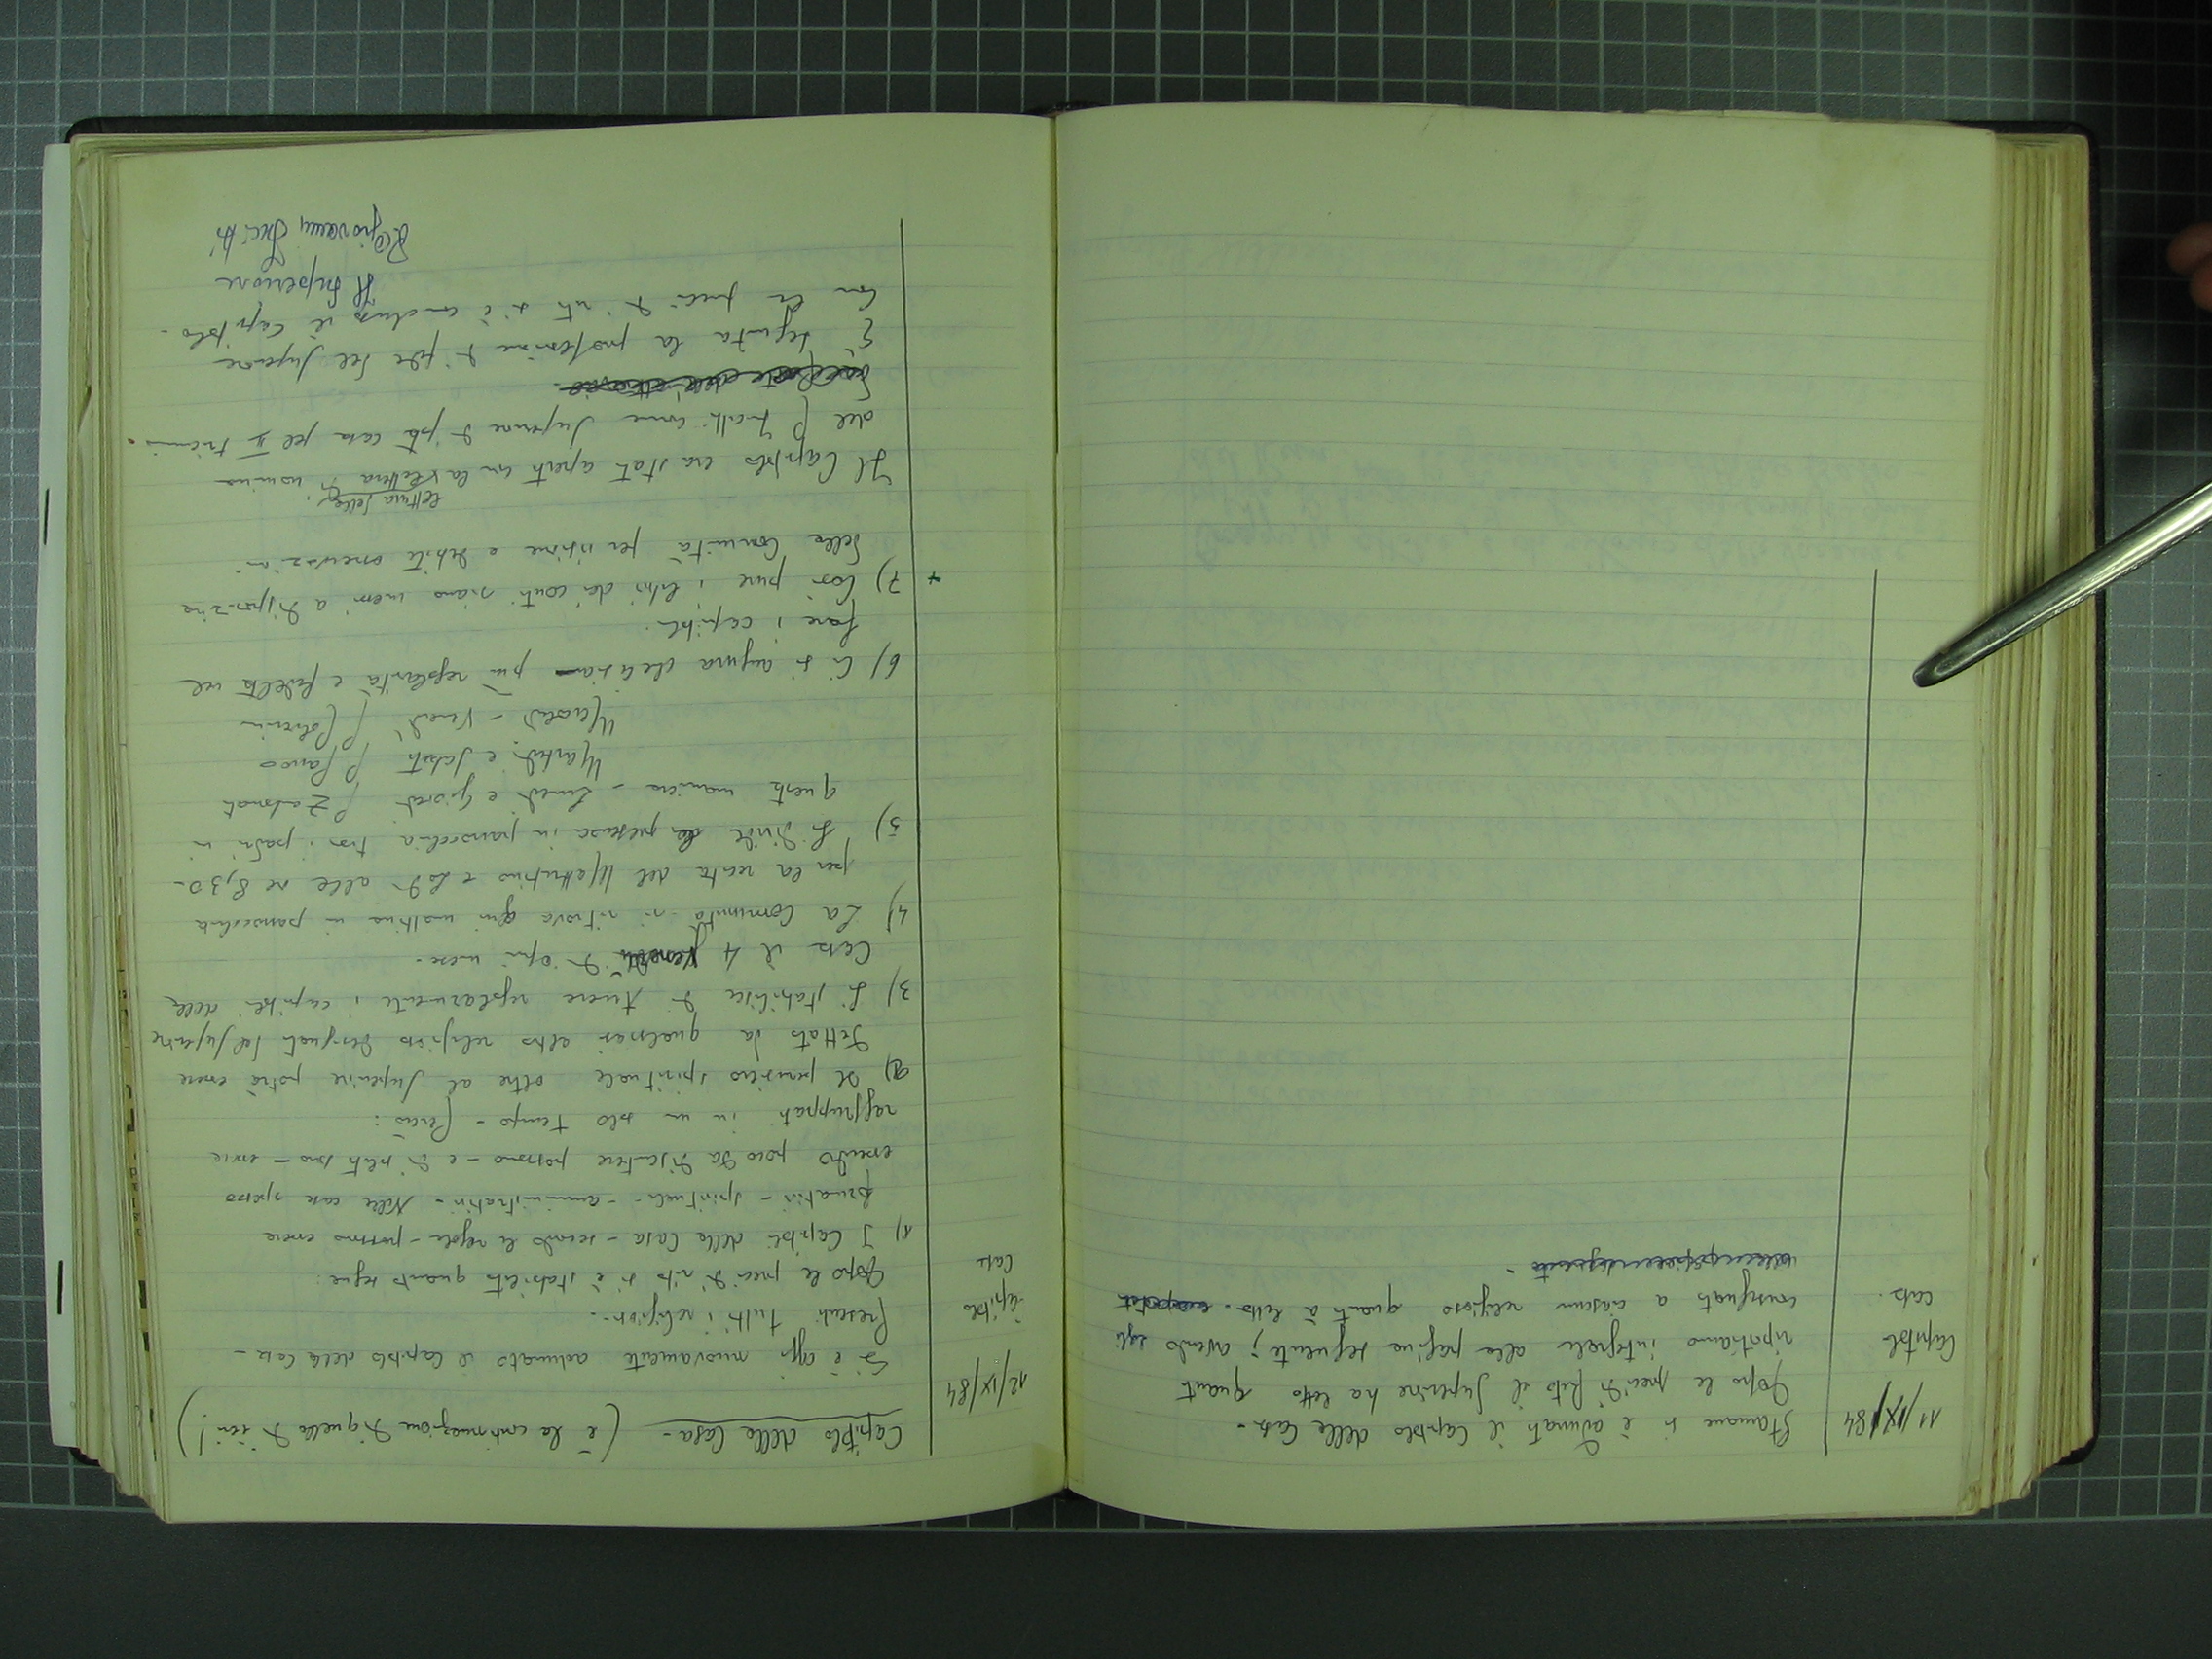 11/IX/84
Capitolo
casa.
Stamane si è adunato il Capitolo della Casa.
Dopo le preci di rito il Superiore ha letto quanto
riportiamo integrale alla pagina seguente; avendo egli
consegnato a ciascun religioso quanto à letto.
12/IX/84
Capitolo
Casa
Capitolo della Casa - (è la continuazione di quello di ieri!)
Si è oggi nuovamente adunato il Capitolo della Casa -
Presenti tutti i religiosi.
Dopo le preci di rito si è stabilito quanto segue:
1) I Capitoli della Casa - secondo la regola - possono essere
formativi - spirituali - amministrativi - Nelle case spesso
essendo poco da discutere possono - e di solito sono - essere
raggruppati in un solo tempo - Perciò:
2) Il pensiero spirituale oltre al Superiore potrà essere
dettato da qualsiasi altro religioso designato dal Superiore
3) Si stabilisce di tenere regolarmente i capitoli della
Casa il 4 di ogni mese.
4) La Comunità si ritrova ogni mattina in parrocchia
per la recita del Mattutino e Lodi alle ore 8,30.
5) Si divide la presenza in parrocchia tra i padri in
questa maniera - Lunedì e Giovedì P.
Martedì e Sabato P.
Mercoledì - Venerdì P.
6) Ci si augura che ci sia più regolarità e fedeltà nel
fare i capitoli.
+ 7) Così pure i libri dei conti siano messi a disposizione
della Comunità per visione e debite osservazioni.
lettura della
Il Capitolo era stato aperto con la lettera di nomina
del P. come Superiore di questa casa pel II triennio.
È seguita la professione di fede del Superiore
Con le preci di rito si è concluso il Capitolo.
Il Superiore